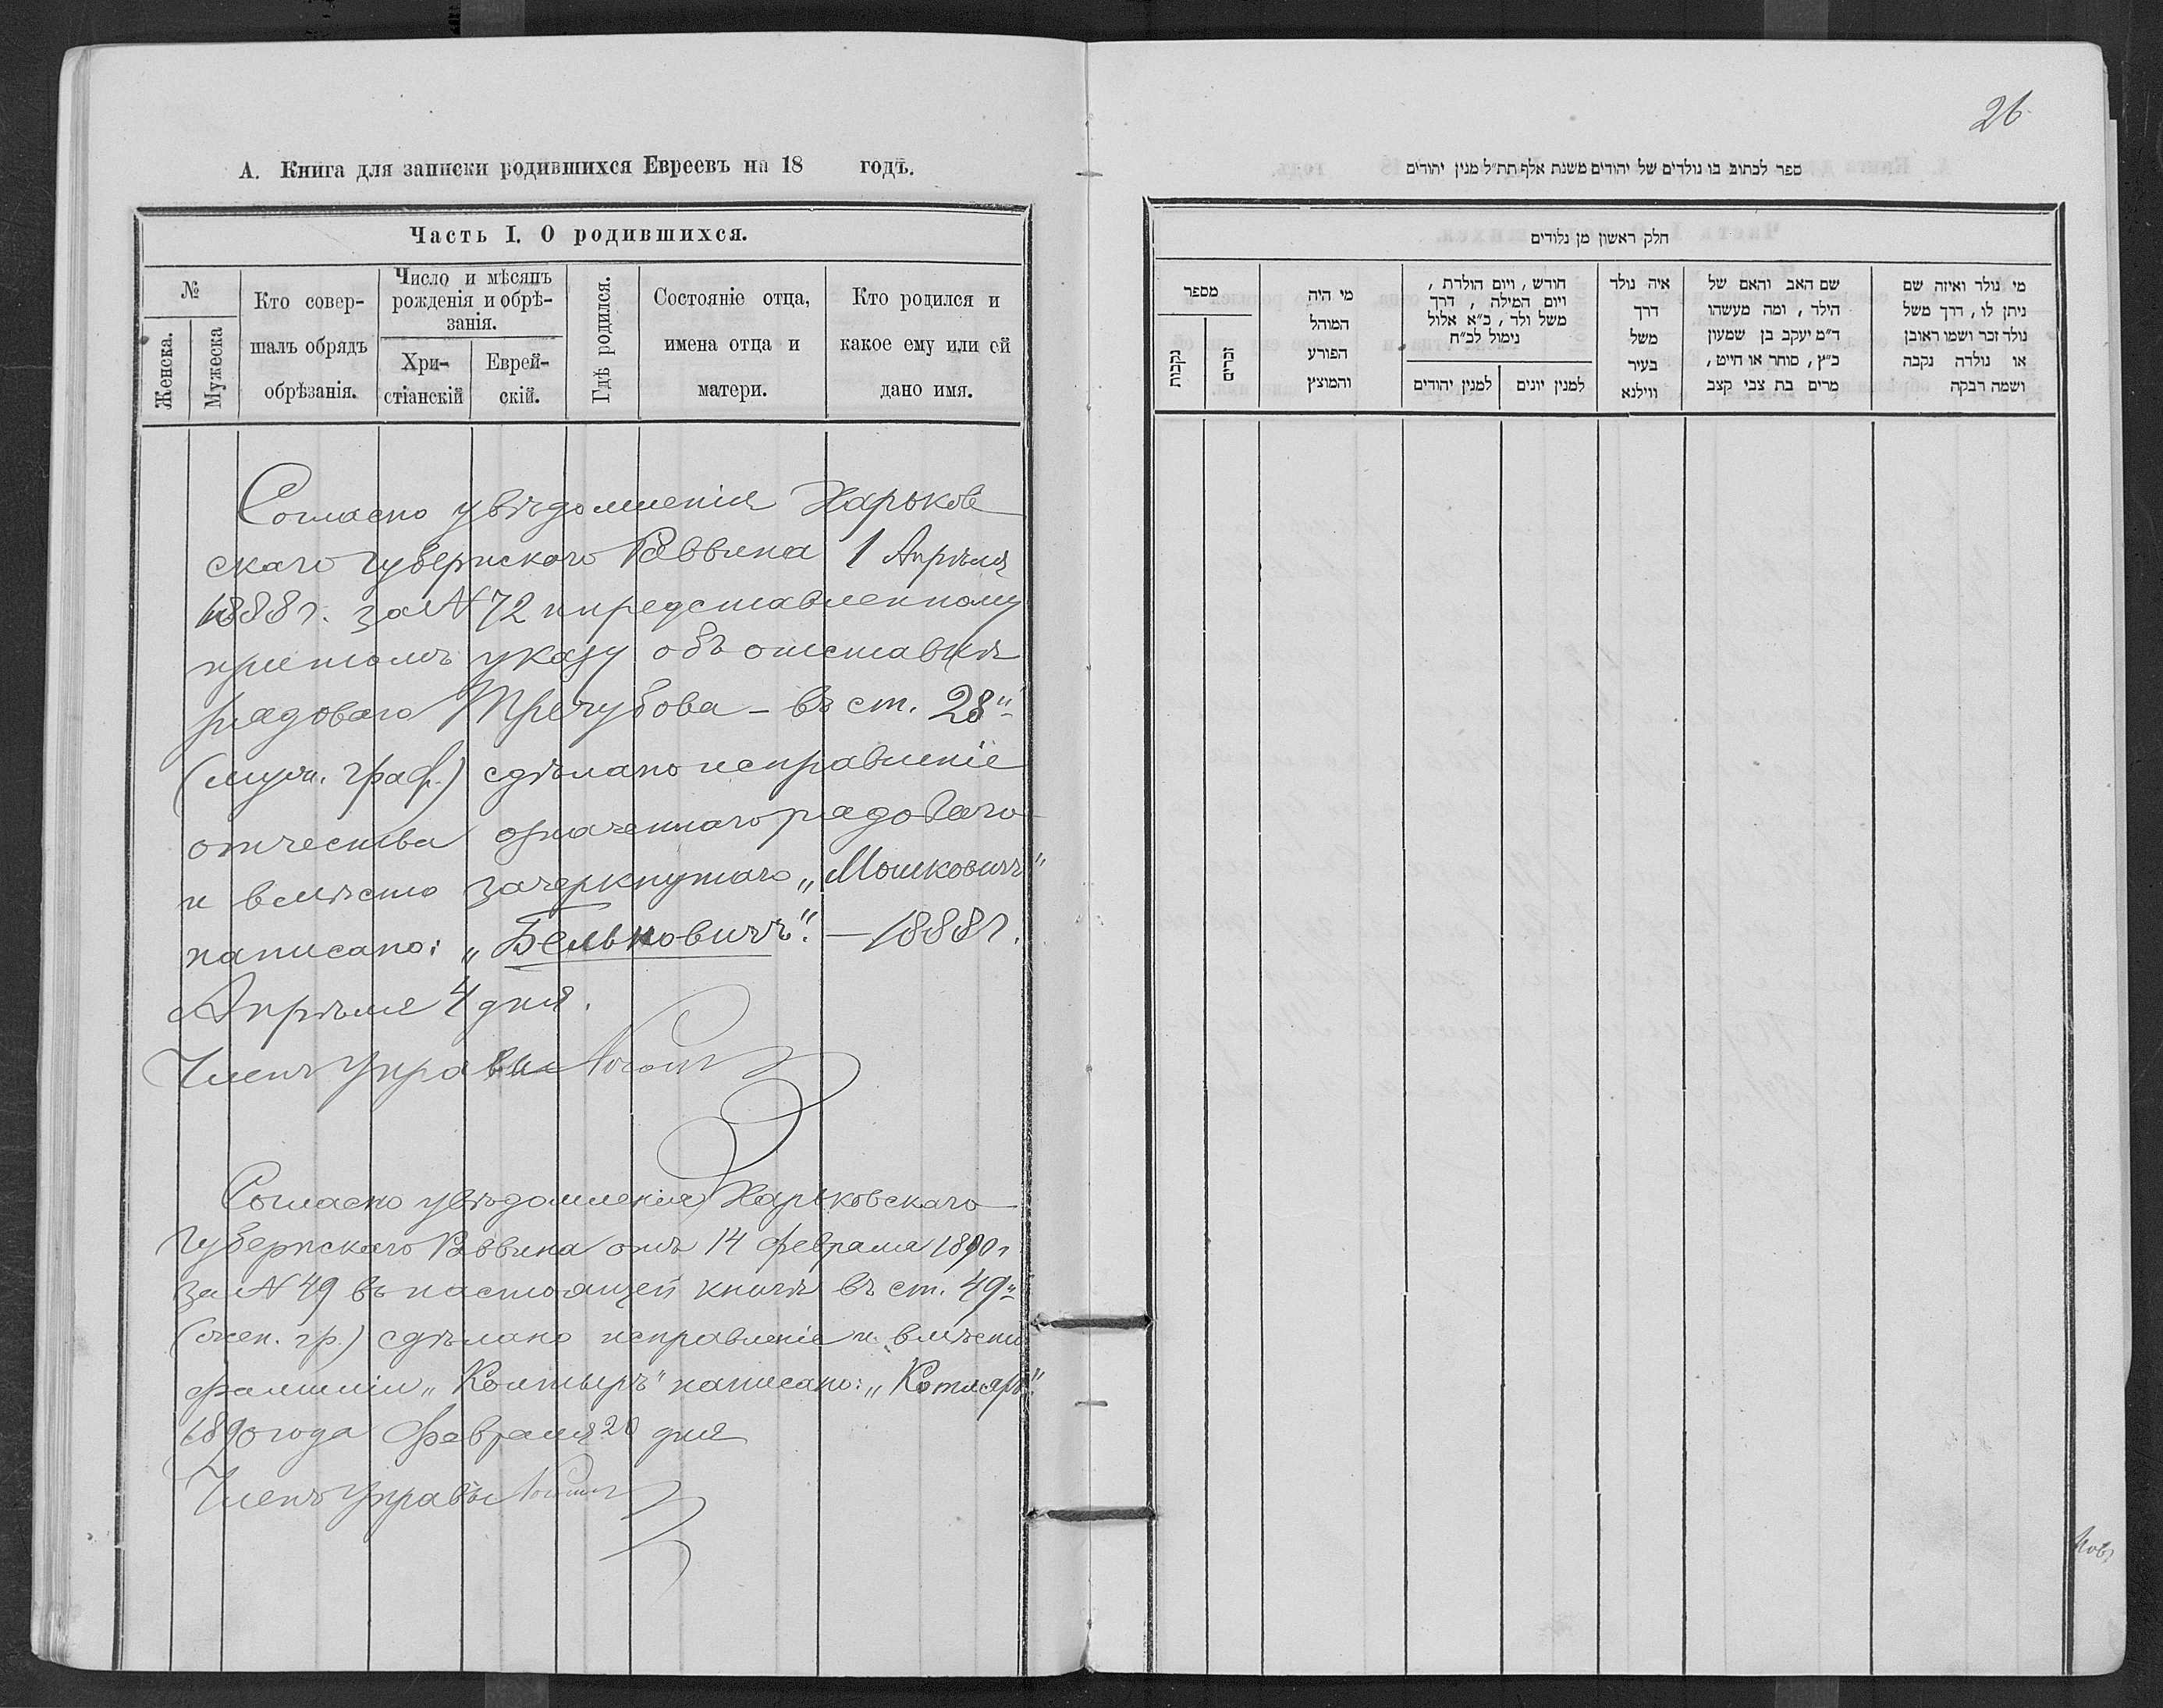 А. Книга для записки родившихся Евреевъ на 18 годъ.
Часть I. О родившихся.
№
Женска.
Мужеска
Кто совер-
шалъ обрядъ
обрѣзанія.
Число и мѣсяцъ
рожденія и обрѣ-
занія.
Хри-
стіанскій
Еврей-
скій.
Гдѣ родился.
Состояніе отца,
имена отца и
матери.
Кто родился и
какое ему или ей
дано имя.
Согласно увѣдомленія Харьков
скаго Губернскаго Раввина 1 Апрѣля
1888 г. за № 72 и представленному
при томъ указу объ отставкѣ
рядоваго Тречубова – въ ст. 28й
(муж. граф.) сдѣлано исправленіе
отчества означеннаго рядоваго
и вмѣсто зачеркнутаго „Мошковичъ"
написано: „Бельковичъ". – 1888 г.
Апрѣля 4 дня.
Членъ Управы
Согласно увѣдомленія Харьковскаго
Губернскаго Раввина отъ 14 февраля 1890 г
за № 49 въ настоящей книгѣ въ ст. 49й
(жен. гр.) сдѣлано исправленіе и вмѣсто
фамиліи „Колтыръ" написано: „Котляръ".
1890 года Февраля 20 дня
Членъ Управы
26
ספר לכתוב בו נולדים של יהודים משנת אלף תת״ל מנין יהודים
חלק ראשון מן נלודים
מי נולד ואיזה שם
ניתן לו, דרך משל
נולד זכר ושמו ראובן
או נולדה נקבה
ושמה רבקה
שם האב והאם של
הילד, ומה מעשהו
ד״מ יעקב בן שמעון
כ״ץ, סוחר או חייט,
מרים בת צבי קצב
איה נולד
דרך
משל
בעיר
ווילנא
חודש, ויום הולדת,
ויום המילה, דרך
משל ולד, כ״א אלול
נימול לכ״ח
למנין יונים
למנין יהודים
מי היה
המוהל
הפורע
והמוצץ
מספר
זכרים
נקבות